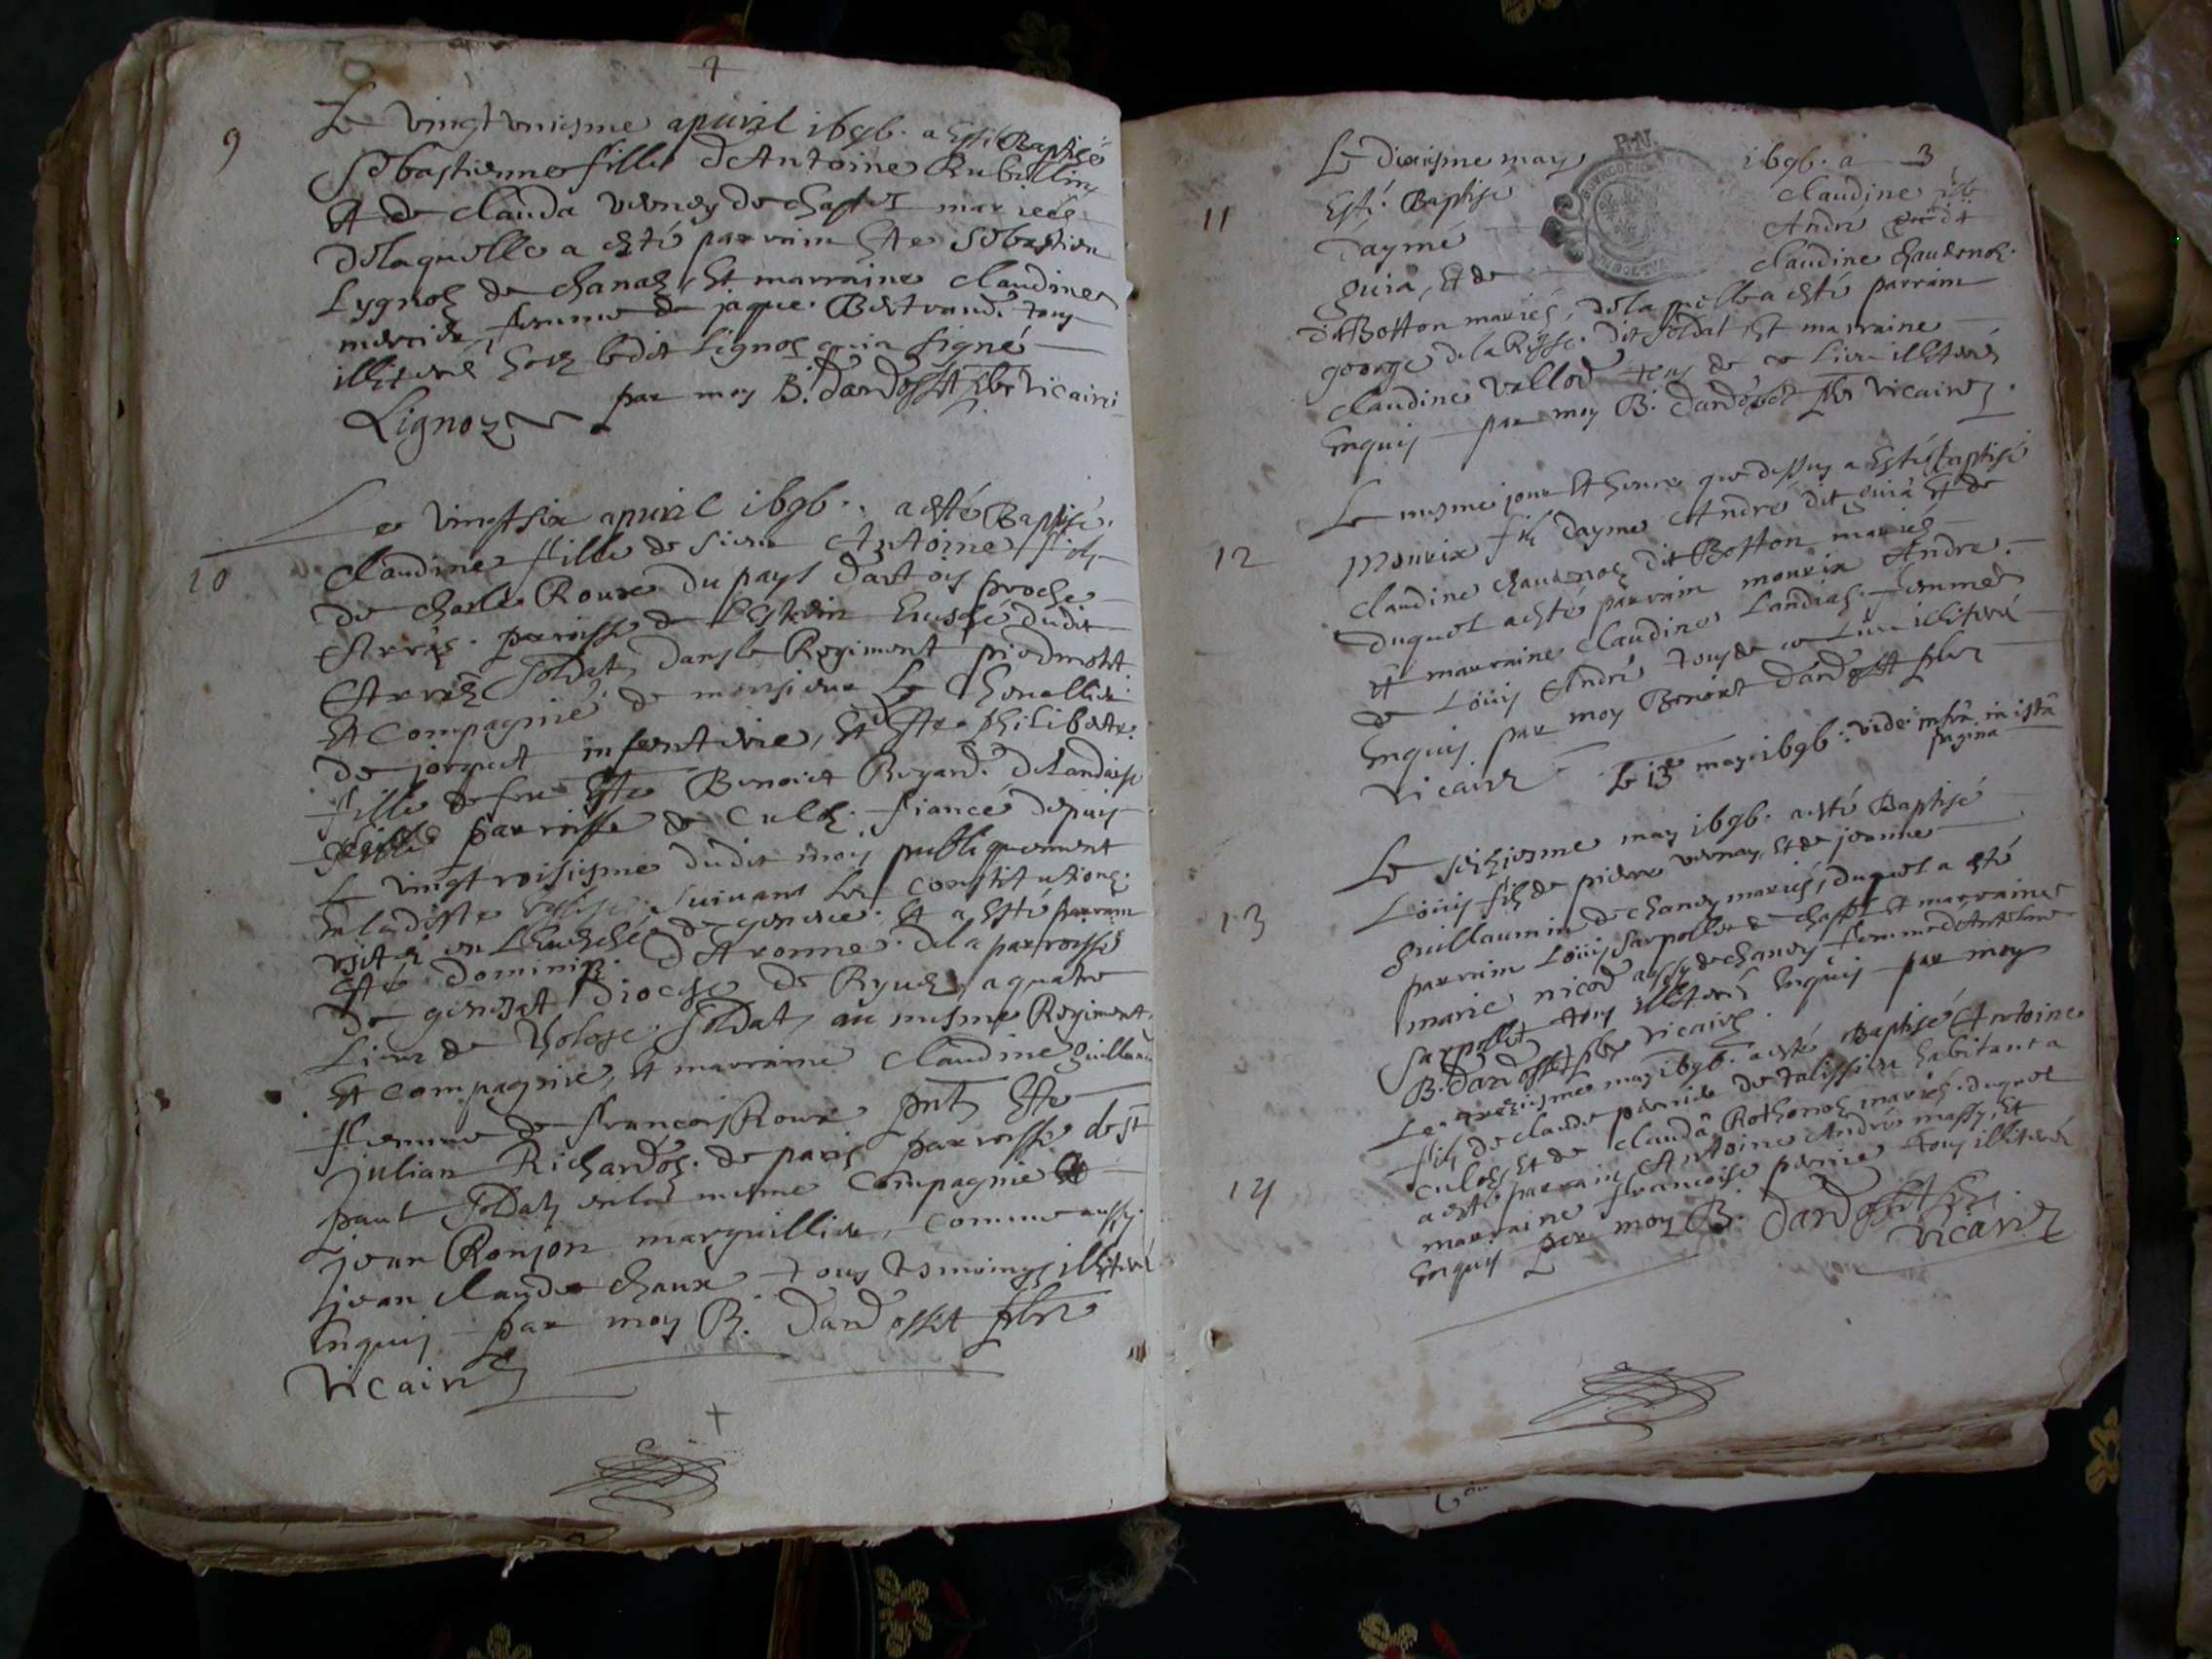 9
Le vingt vniesme apuril 1696. a esté Baptisée
Sebastienne fille d'Antoine Rubellin
et de Clauda verney de chastel mariés
de laquelle a esté parrain hte Sebastien
Lygnoz de chanaz, et marraine Claudine
mercier femme de jaque Bertrand. tous
illiterés hors ledit Lignoz qui a signé
Lignoz par moy B. dardossett pbr vicaire
10
Le vingt six apuril 1696. a esté Baptisée
Claudine fille de sieur Antoine filz
de charle Roux du pays d'artois proche
Arras. parroisse de Euesché dudit
Arras soldat dans le Regiment piedmont
et Compagnie de monsieur Le Cheuallier
de jorquet infanterie, et hte philiberte
fille de feu hte Benoict Regard. de Landaise
parroisse de Culoz. fiancé depuis
Le vingt troisiesme dudit mois publiquement
en laditte Eglise suiuant Les Constitutions
en L'Euesché de geneue. et a esté parrain
hte dominiq. d'Aronne. de la parroisse
de generat Diocese de a quatre
Lieux de Tholose, soldat au mesme Regiment,
et compagnie, et marraine Claudine guillaud
femme de françois Roux pnts hte
julian Richardoz. de paris parroisse de st
paul soldat en la mesme Compagnie et
jean Ronjon marguillier, comme aussy
jean claude chaux tous tesmoings illiterés
Enquis par moy B. dardossett pbr
vicaire
R.N.
3
11
Le dixiesme may 1696. a
Esté Baptisé Claudine
d'aymé André dit
guia, et de Claudine chauenoz
dit Botton mariés, de laquelle a esté parrain
george de la Rysse. dit soldat et marraine
Claudine vallod tous de ce Lieu illiterés
Enquis par moy B. dardossett pbr vicaire
12
Le mesme jour et heure que dessus a Esté baptisé
mourix filz d'aymé André dit guia et de
Claudine chauenoz dit Botton mariés
duquel a esté parrain mourix André.
et marraine Claudine Landraz. femme
de Louis André tous de ce Lieu illiterés
Enquis par moy Benoict dardossett pbr
vicaire Le 13 may 1696. vide infra in ista
pagina
13
Le seiziesme may 1696. a esté Baptisé
Louis filz de pierre vernay, et de jeanne
guillaumin de chanay mariés, duquel a esté
parrain Louis Sarpollet de chastel et marraine
marie nicod aussy de chanay femme d'Antoine
Sarpollet tous illiterés Enquis par moy
B. dardossett pbr vicaire.
14
Le treziesme may 1696. a esté Baptisé Antoine
filz de claude pernier de Talissieu habitant a
culoz et de clauda Rothonoz mariés. duquel
a esté parrain Antoine André massy, et
marraine françoise pernier tous illiterés
Enquis par moy B. dardossett pbr.
vicaire